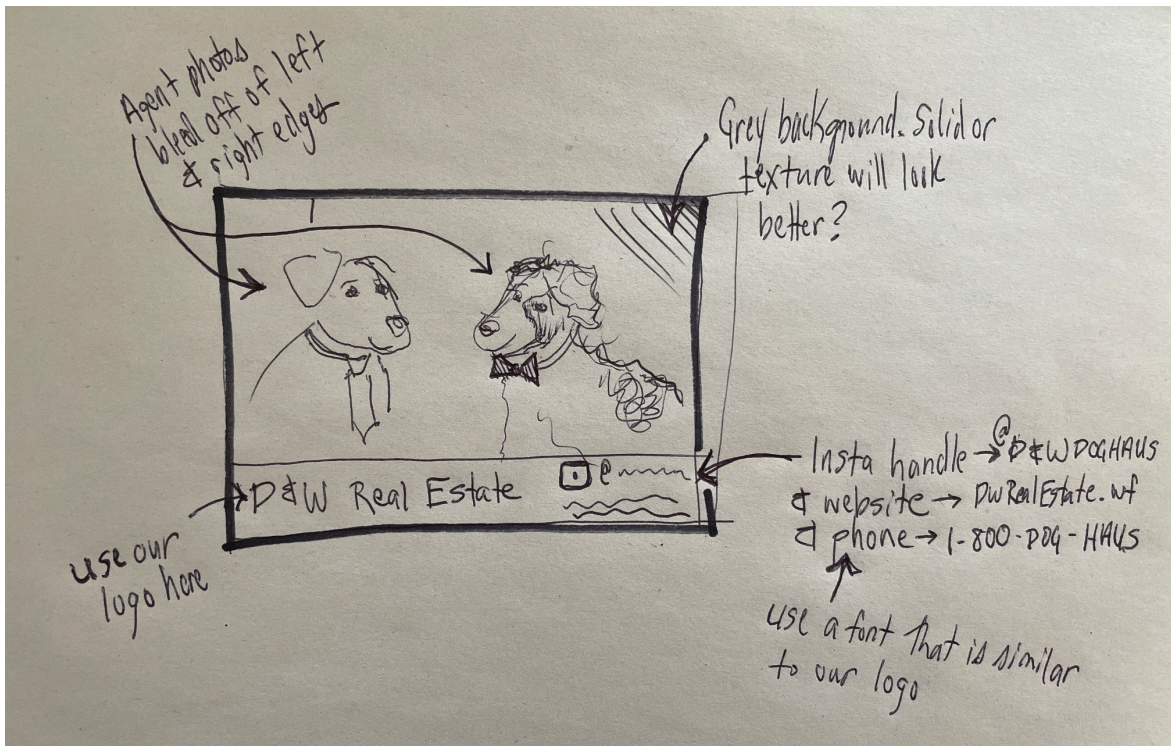 Agent photos
bleed off of left
& right edges
Grey background. Solid or
texture will look
better?
D&W Real Estate
@
use our
logo here
Insta handle → @D&WDOGHAUS
& website → DWRealEstate.wf
& phone → 1-800-DOG-HAUS
use a font that is similar
to our logo